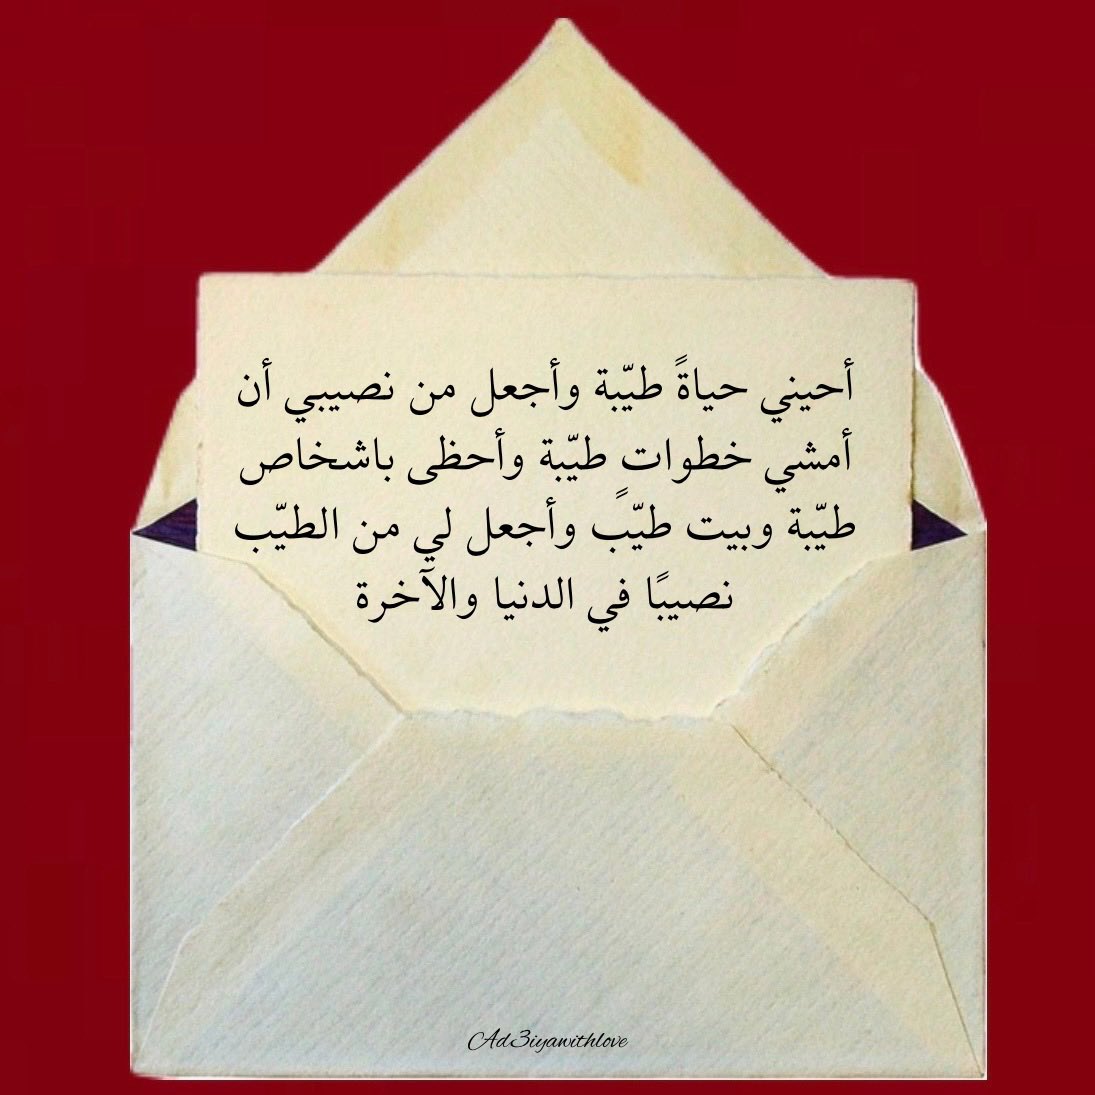 أحيني حياةً طيّبة وأجعل من نصيبي أن
أمشي خطوات طيّبة وأحظى باشخاص
طيّبة وبيت طيّبً وأجعل لي من الطيّب
نصيبًا في الدنيا والآخرة
Ad3iyawithlove